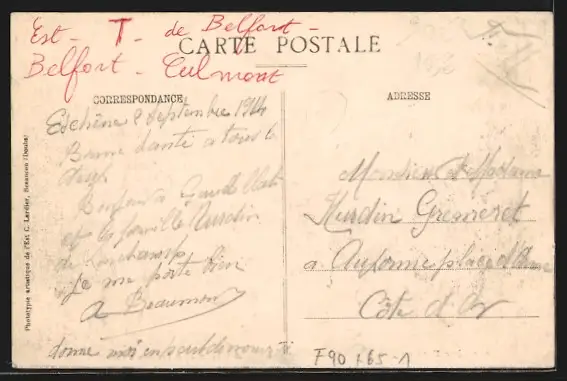 Est - T - de Belfort -
CARTE POSTALE
Belfort - Culmont
CORRESPONDANCE
Eschêne 8 Septembre 1914
Bonne Santé a tous le
deux
Bonjour a
et la famille Nurdin
de Ronchamp
Je me porte bien
A Beaumont
donne moi un peut de
ADRESSE
Monsieur et Madame
Nurdin
a Auxonne place d'
Côte d'Or
F90 + 65 - 1
Phototypie artistique de l'Est C. Lardier, Besançon (Doubs)